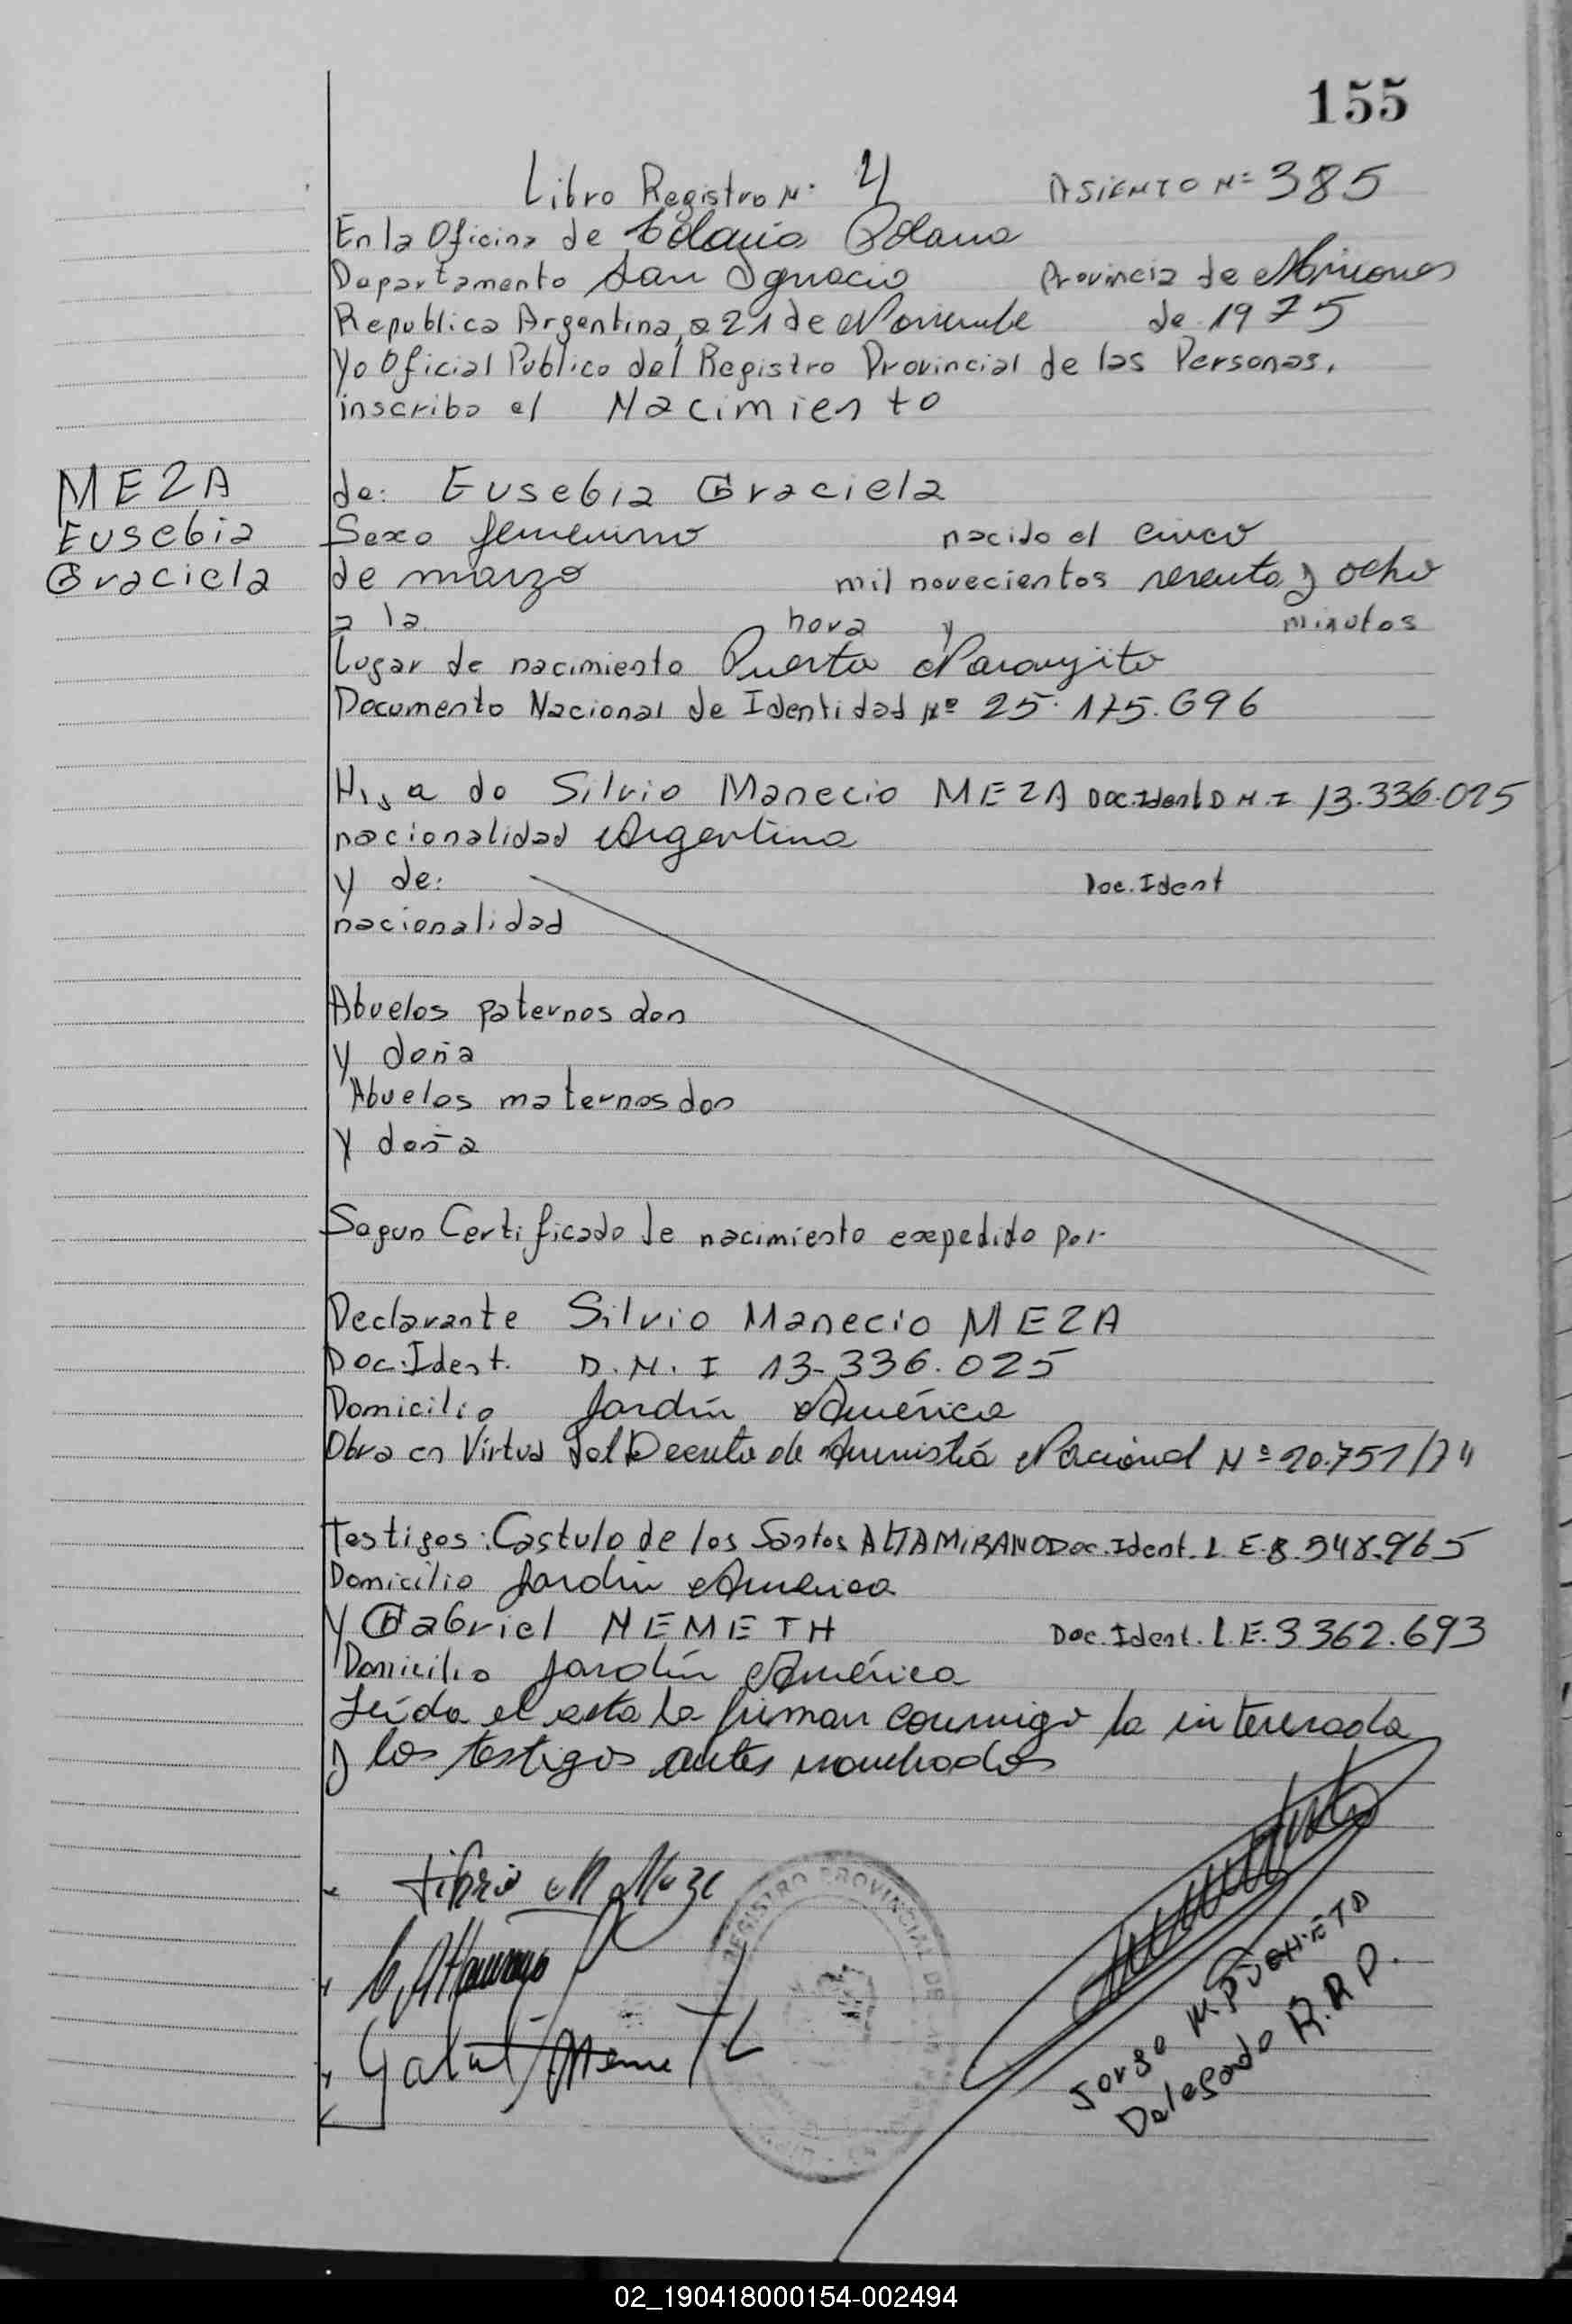 155
Libro Registro Nº 4 ASIENTO Nº 385
En la Oficina de Colonia Polana
Departamento San Ignacio Provincia de Misiones
Republica Argentina, a 21 de Noviembre de 1975
Yo Oficial Publico del Registro Provincial de las Personas,
inscribo el Nacimiento
MEZA de: Eusebia Graciela
Eusebia Sexo femenino nacido el cinco
Graciela de marzo mil novecientos sesenta y ocho
a la hora y minutos
Lugar de nacimiento Puerto Naranjito
Documento Nacional de Identidad Nº 25.175.696
Hija de Silvio Manecio MEZA Doc.Ident D.N.I 13.336.025
nacionalidad Argentina
y de: Doc.Ident
nacionalidad
Abuelos paternos don
y doña
Abuelos maternos don
y doña
Segun Certificado de nacimiento expedido por
Declarante Silvio Manecio MEZA
Doc.Ident. D.N.I 13-336.025
Domicilio Jardín América
Obra en Virtud del Decreto de Amnistiá Nacional Nº 20.751/74
Testigos: Castulo de los Santos ALTAMIRANO Doc.Ident. L.E. 8.548.965
Domicilio Jardin America
y Gabriel NEMETH Doc.Ident. L.E. 3362.693
Domicilio Jardín América
Leída el acta la firman conmigo la interesada
y los testigos antes nombrados
REGISTRO PROVINCIAL DE
Jorge M.
Delegado R.R.P.
02_190418000154-002494